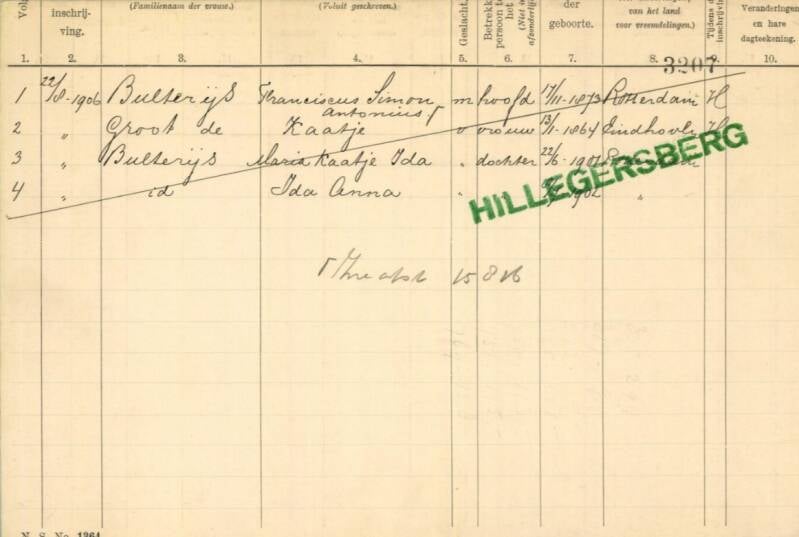 Vol
inschrij-
ving.
(Familienaam der vrouw.)
(Voluit geschreven.)
Geslacht.
Betrekk
persoon to
het
(Niet in
afzonderlijk
der
geboorte.
van het land
voor vreemdelingen.)
Tijdens d
inschrijvi
Veranderingen
en hare
dagteekening.
1. 2. 3. 4. 5. 6. 7. 8. 9. 10.
3207
1 22/8-1906 Bulterijs Franciscus Simon m hoofd 17/11-1873 Rotterdam H
Antonius
2 " Groot de Kaatje v vrouw 13/1-1864 Eindhoven
3 " Bulterijs Maria Kaatje Ida " dochter 22/6-1901
4 " id Ida Anna " " 1902 "
HILLEGERSBERG
15 8 16
N. S. No. 1364